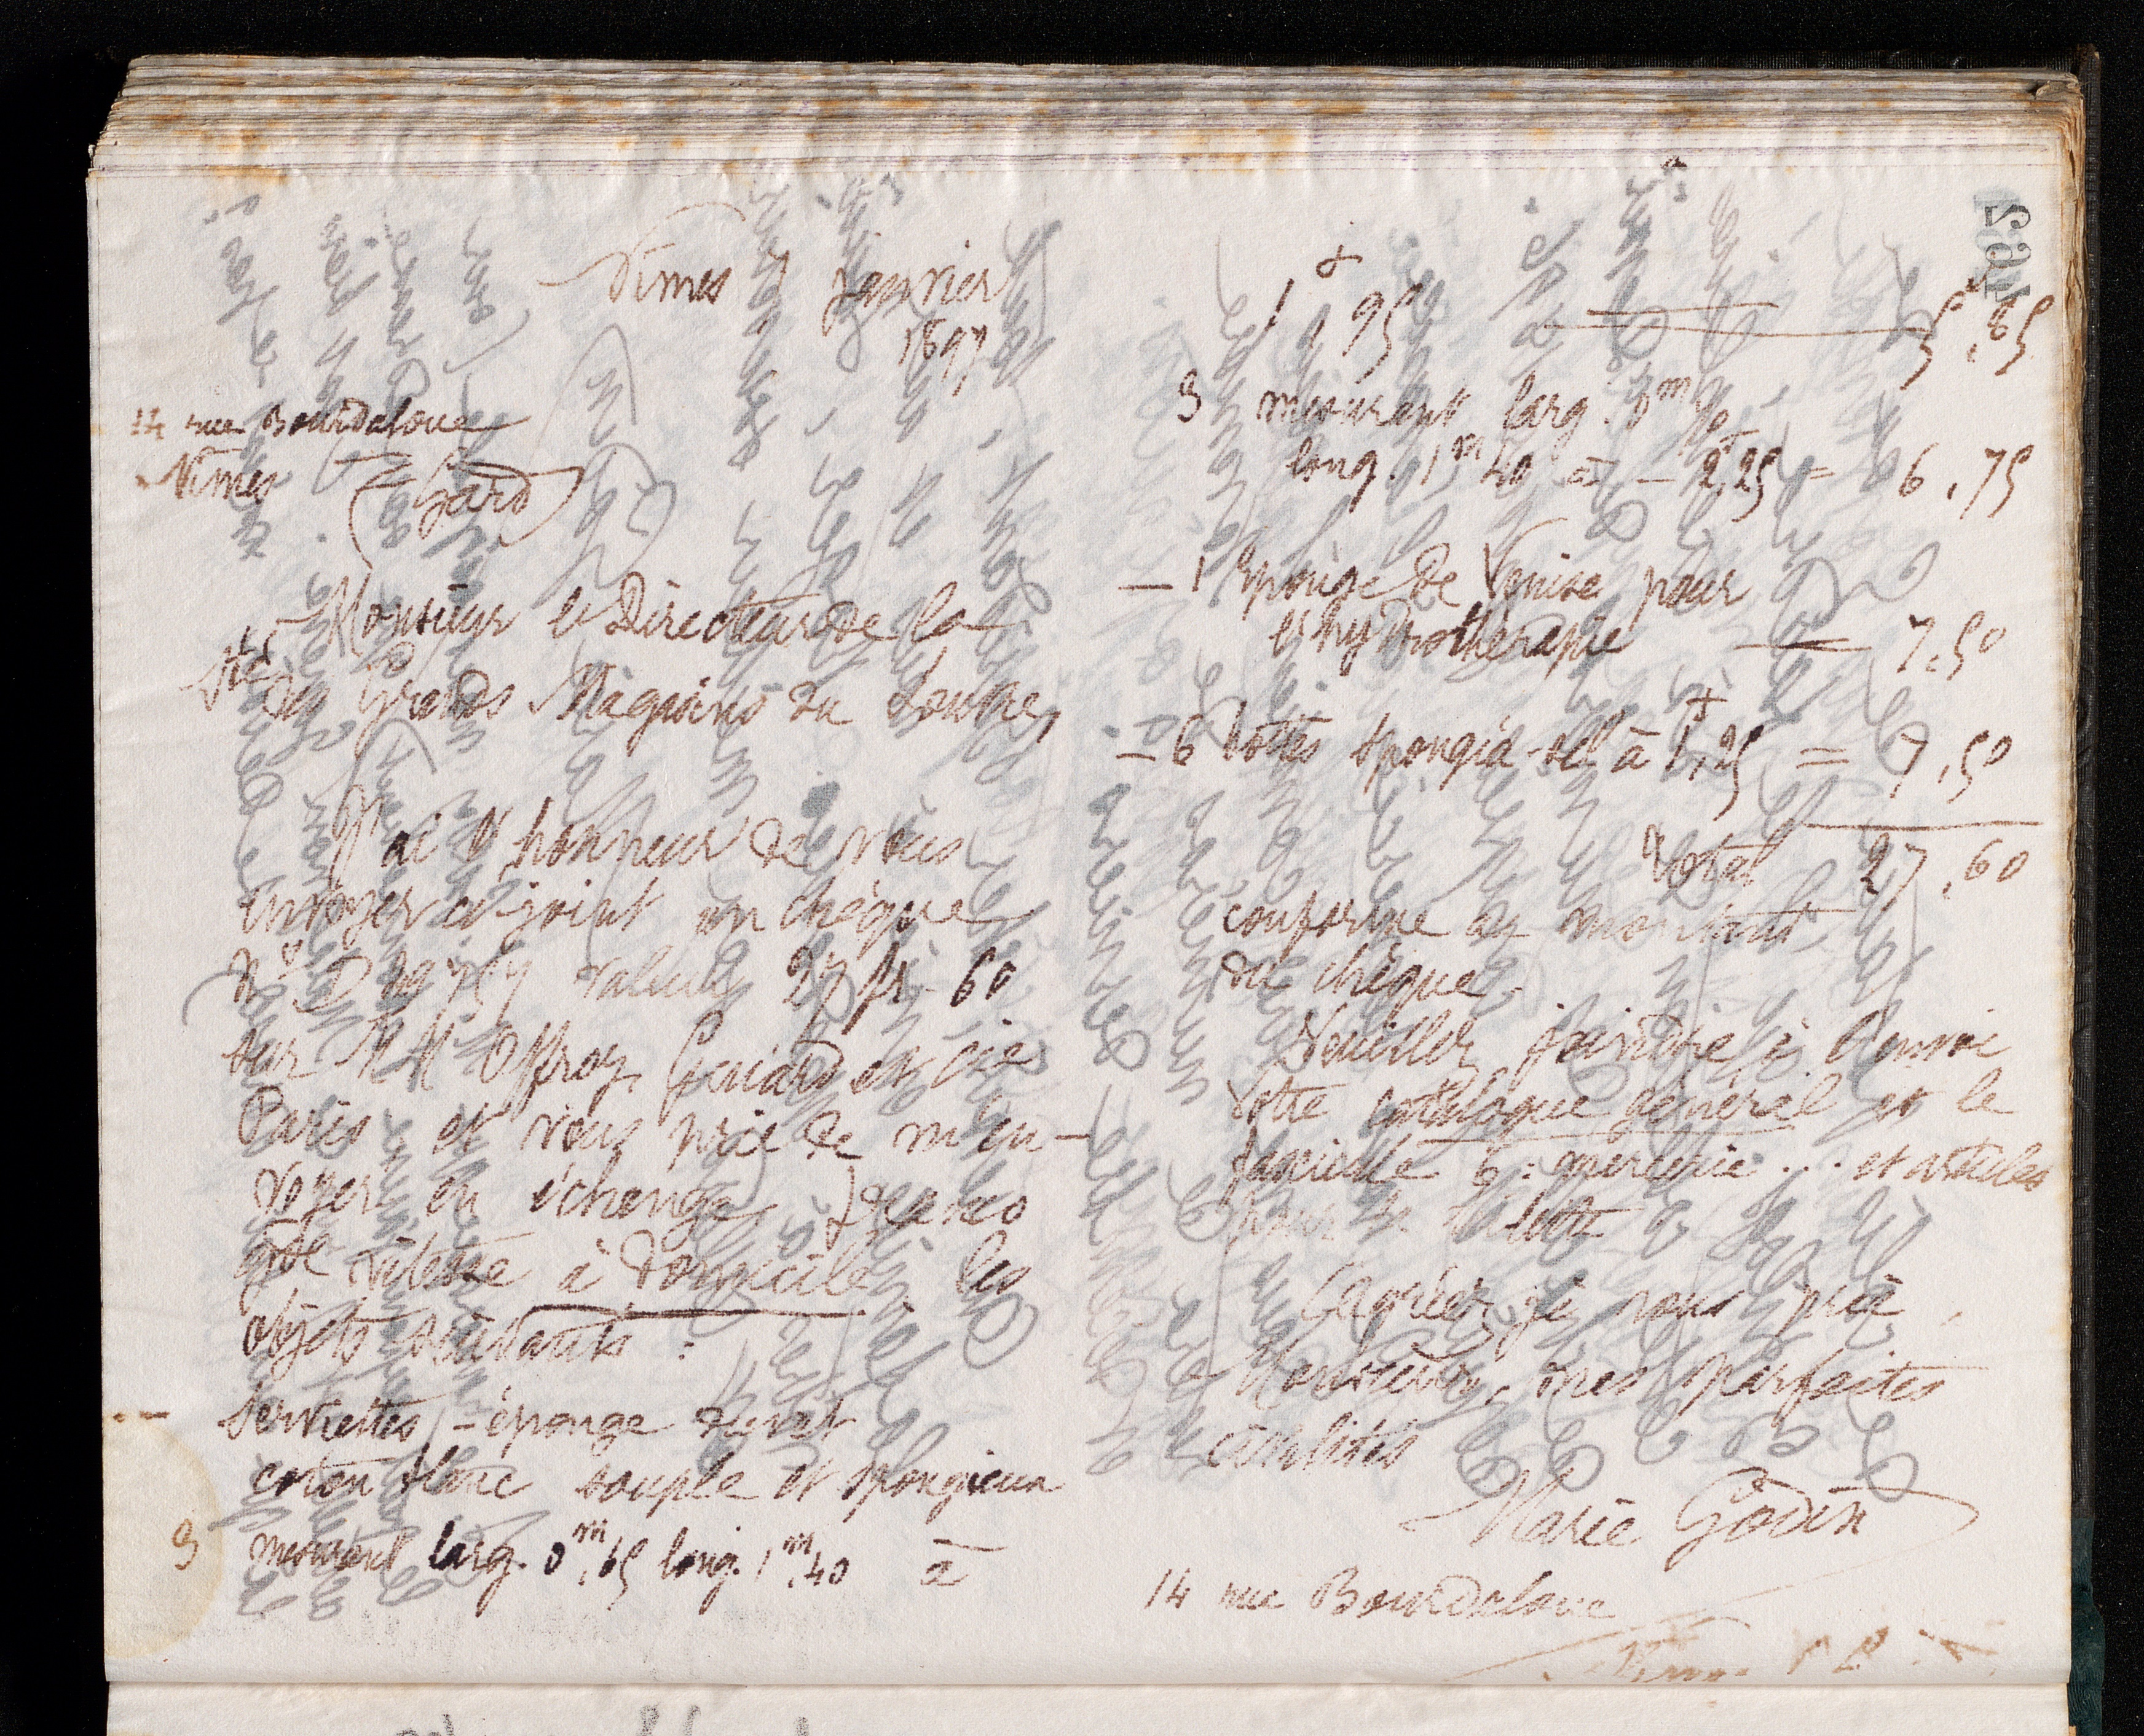 Nîmes 7 janvier
1897
14 rue Bourdaloue
Nîmes (Gard)
Monsieur le Directeur de la
Sté des Grands Magasins du Louvre,
J'ai l'honneur de vous
envoyer ci-joint un chèque
valeur 27 fr. 60
sur MM Offroy, Guiard et cie
Paris et vous prie de m'en-
voyer en échange, franco
gde vitesse à domicile les
objets suivants :
— Serviettes-éponge
coton blanc souple et spongieux
3 mesurant larg. 0m,65 long. 1m,40 à
1f,95 — 5,85
3 mesurant larg. 0m,
long. 1m,40 à — 2f,25 = 6,75
— 1 éponge de Venise pour
l'hydrothérapie — 7.50
— 6 boîtes à 1f,25 = 7,50
Total 27,60
conforme au montant
du chèque.
Veuillez joindre à l'envoi
votre catalogue général et le
fascicule 6 : mercerie... et articles
pour la toilette
Agréez je vous prie,
Monsieur, mes parfaites
civilités
Marie Godin
14 rue Bourdaloue
Nîmes
462